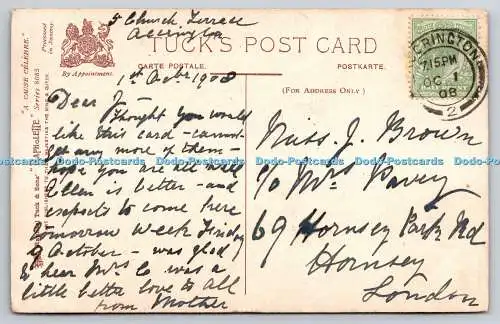 5 Church Terrace
Accrington
TUCK'S POST CARD
CARTE POSTALE.
POSTKARTE.
By Appointment.
(FOR ADDRESS ONLY.)
"A CAUSE CÉLÈBRE."
Series 8063
Raphael Tuck & Sons'
ACCRINGTON
7.15PM
OC 1
08
2
1st Octbr 1908
Dear J
Thought you would
like this card – cannot
get any more of them –
hope you are all well
Ellen is better – and
expects to come here
Tomorrow week Friday
9 October – was glad
to hear Mrs Co was a
little better love to all
from Mother
Miss J. Brown
c/o Mrs Pavey
69 Hornsey Park Rd
Hornsey
London
Dado-Postcards Dado-Postcards Dado-Postcards Dado-Postcards Dado-Postcards